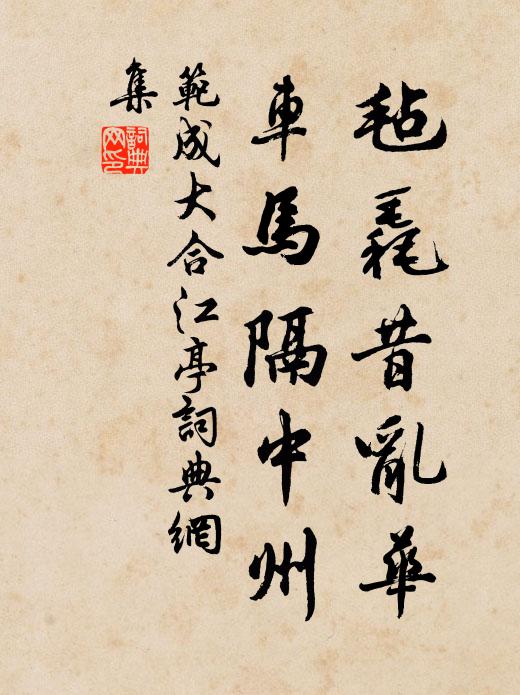 毡毳昔亂華
車馬隔中州
範成大合江亭詞典網
集
詞典
网印